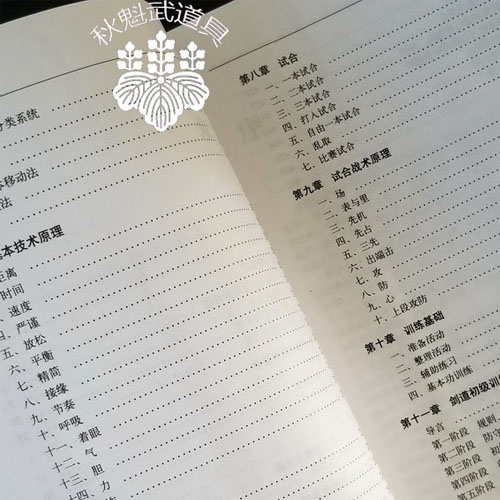 秋魁武道具
分类系统
移动法
法
本技术原理
距离
时间
速度
四、严谨
五、放松
六、平衡
七、精简
八、接缘
九、节奏
十、呼吸
十一、着眼
十二、气
十三、胆
十四、力
第八章 试合
一、一本试合
二、二本试合
三、三本试合
四、打入试合
五、自由一本试合
六、乱取
七、比赛试合
第九章 试合战术原理
一、场
二、表与里
三、先机
四、先占
五、三先
六、出端击
七、攻
八、防
九、心
十、上段攻防
第十章 训练基础
一、准备活动
二、整理活动
三、辅助练习
四、基本功训练
第十一章 剑道初级训
导言
第一阶段 规则、
第二阶段 防守
第三阶段 初
第四阶段
第五阶段